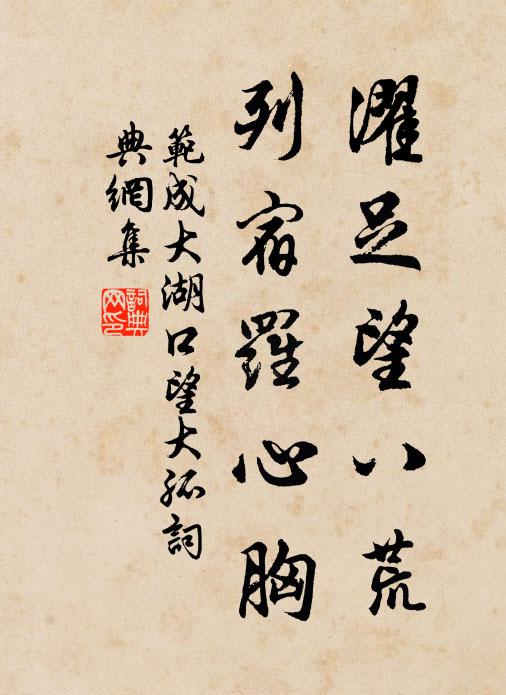 濯足望八荒
列宿羅心胸
範成大湖口望大孤詞
典網集
詞典
网印